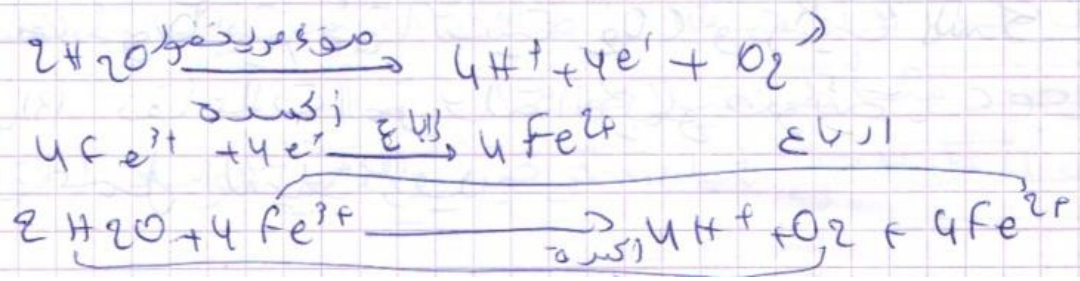 2H2O ضوء + يخضور → 4H⁺ + 4e⁻ + O2
أكسدة
4Fe³⁺ + 4e⁻ إرجاع → 4Fe²⁺ ارجاع
2H2O + 4Fe³⁺ → 4H⁺ + O2 + 4Fe²⁺
أكسدة